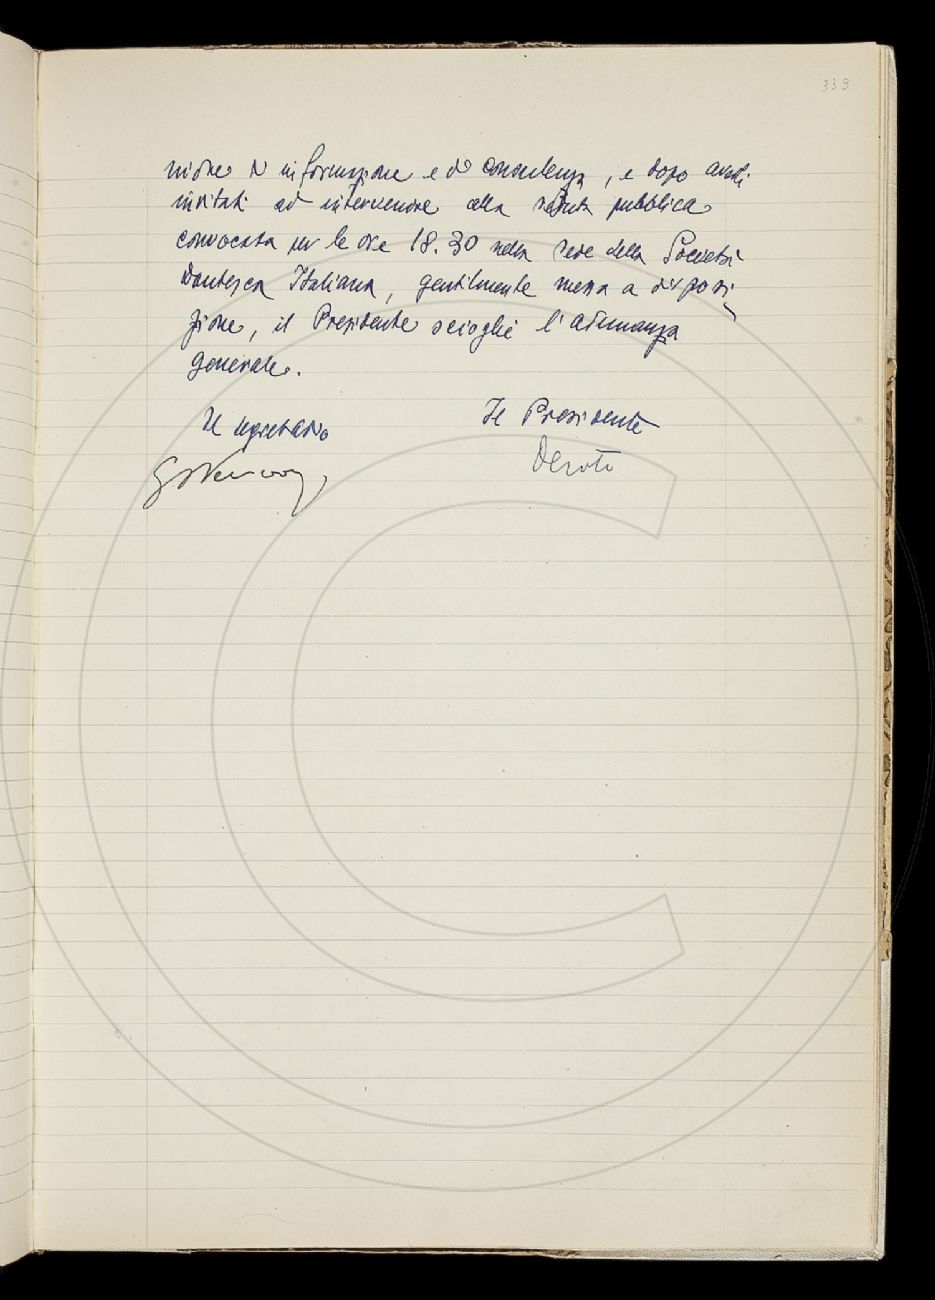 339
nione di informazione e di consulenza, e dopo averli
invitati ad intervenire alla seduta pubblica
convocata per le ore 18.30 nella sede della Società
Dantesca Italiana, gentilmente messa a disposi
zione, il Presidente scioglie l'adunanza
generale.
Il segretario Il Presidente
Devoto